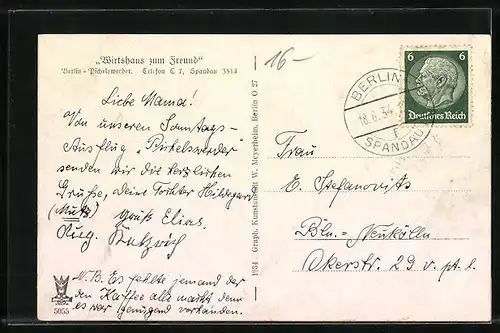 „Wirtshaus zum Freund“
Berlin - Pichelswerder. Telefon C 7, Spandau 3514
16-
Liebe Mama!
Von unseren Sonntags-
Ausflug „Pichelswerder“
senden wir die herzlichen
Grüße, deine Tochter Hildegard
(Mutz) Gruß Elias.
N.B. Es fehlte jemand der
den Kaffee alle macht denn
es war genügend vorhanden.
5055
1934 Graph. Kunstanstalt W. Meyerheim, Berlin O 27
6 6
Deutsches Reich
BERLIN
18.6.34
SPANDAU
Frau
E. Stefanovits
Bln.-Neukölln
Okerstr. 29 v. pt. l.